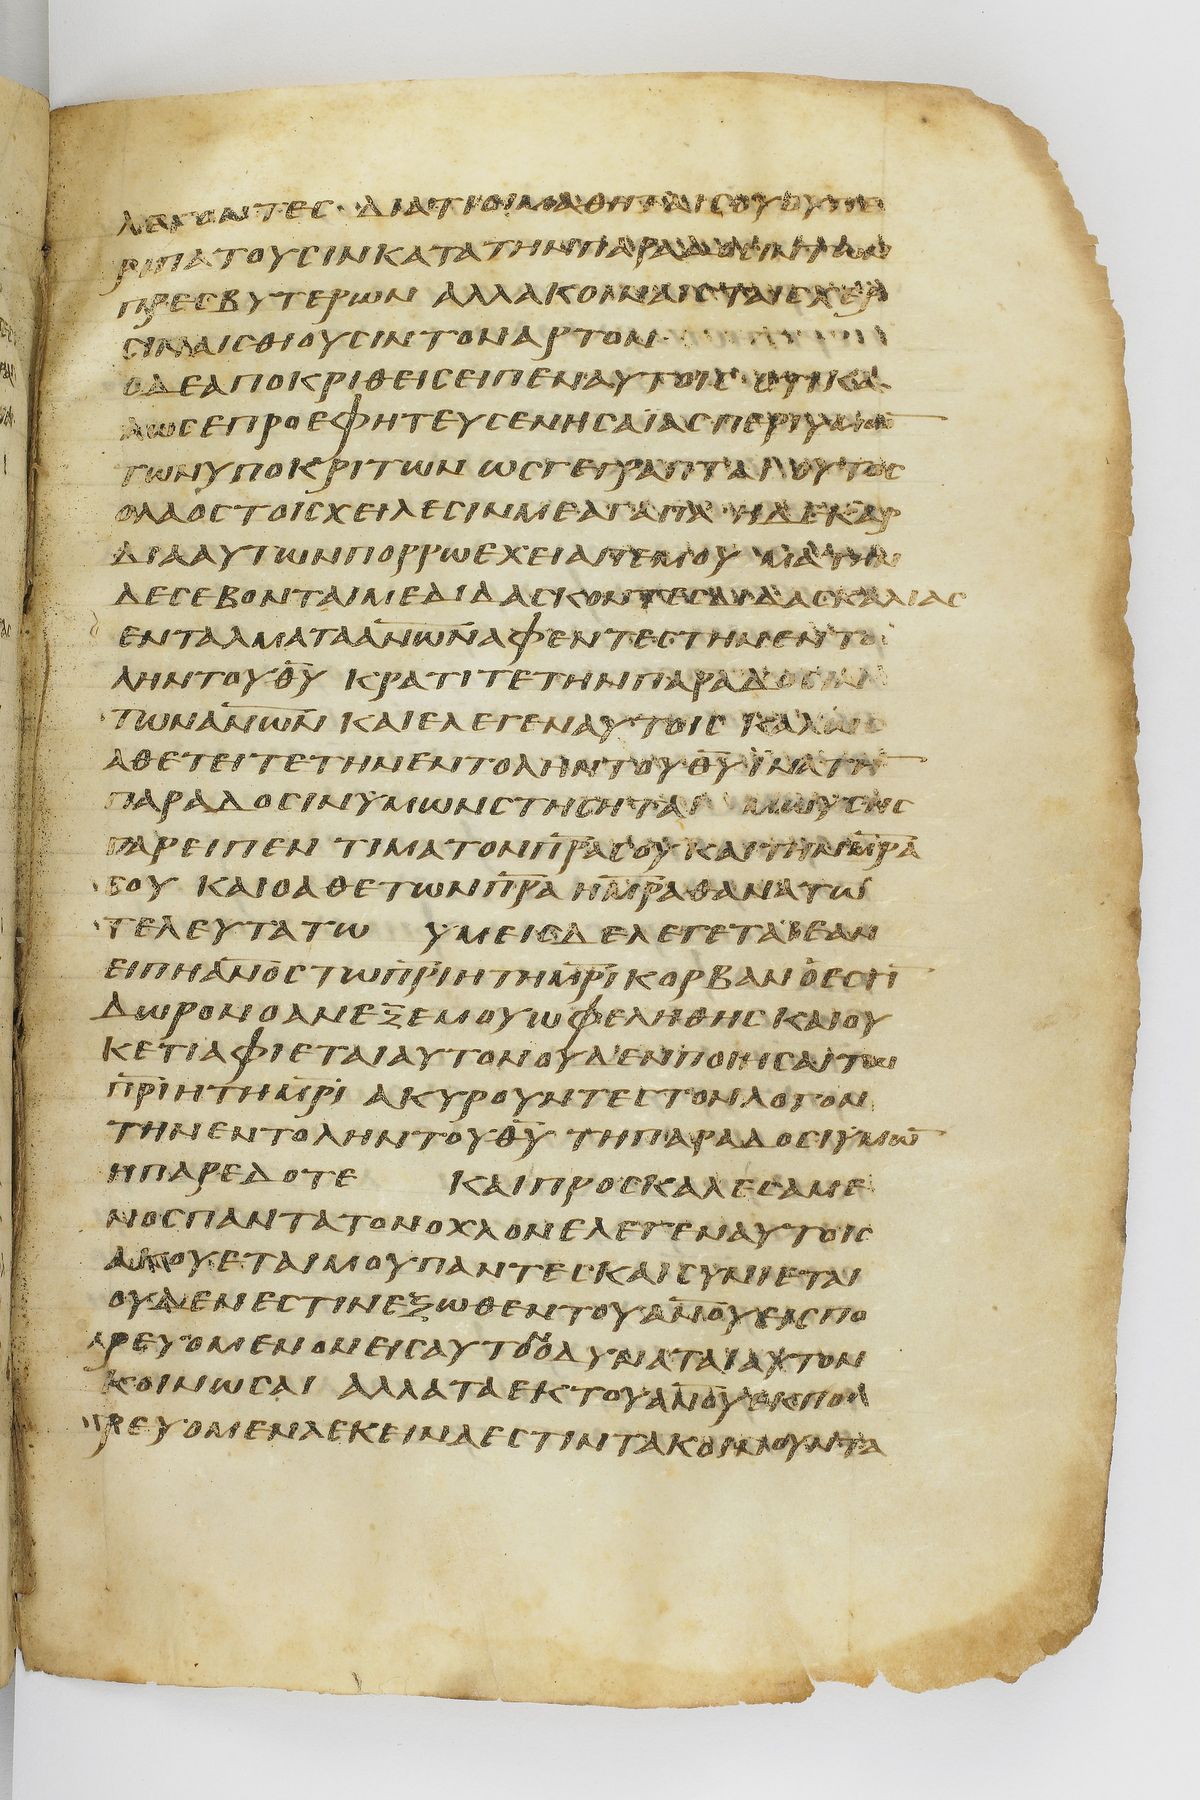 λεγοντες · διατιοιμαθηταισου
ριπατουσινκατατηνπαραδοσιντων
πρεσβυτερων αλλακοιναιςταιςχερ
σιναισθιουσιντοναρτον
οδεαποκριθεισειπεναυτοις
λωςεπροεφητευσενησαϊαςπεριυμω̅
τωνυποκριτων ωςγεγραπται ουτος
ολαοςτοιςχειλεσινμεαγαπα ηδεκαρ
διααυτωνπορρωεχειαπεμου ματην
δεσεβονταιμεδιδασκοντεςδιδασκαλιας
ενταλματαα̅ν̅ω̅ν̅αφεντεςτηνεντο
ληντουθ̅υ̅ κρατιτετηνπαραδοσιν
τωνα̅ν̅ω̅ν̅ καιελεγεναυτοις καλως
αθετειτετηνεντοληντουθ̅υ̅ϊνατη̅
παραδοσινυμωνστησηται μωυσης
γαρειπεν τιματονπ̅ρ̅α̅σουκαιτηνμ̅ρ̅α̅
σου καιοαθετωνπ̅ρ̅α̅ημ̅ρ̅α̅θανατω
τελευτατω υμεισδελεγεταιεαν
ειπηα̅ν̅ο̅ς̅τωπ̅ρ̅ι̅ητημ̅ρ̅ι̅κορβανοεστι̅
δωρονοανεξεμουωφεληθηςκαιου
κετιαφιεταιαυτονουδενποιησαιτω
π̅ρ̅ι̅ητημ̅ρ̅ι̅ ακυρουντεςτονλογον
τηνεντοληντουθ̅υ̅ τηπαραδοσιυμω̅
ηπαρεδοτε καιπροσκαλεσαμε
νοςπαντατονοχλονελεγεναυτοις
ακουεταιμουπαντεςκαισυνιεται
ουδενεστινεξωθεντουα̅ν̅ο̅υ̅εισπο
ρευομενονεισαυτοⁿοδυναταιαυτον
κοινωσαι αλλαταεκτουα̅ν̅ο̅υ̅εκπο
ρευομεναεκειναεστιντακοινουντα